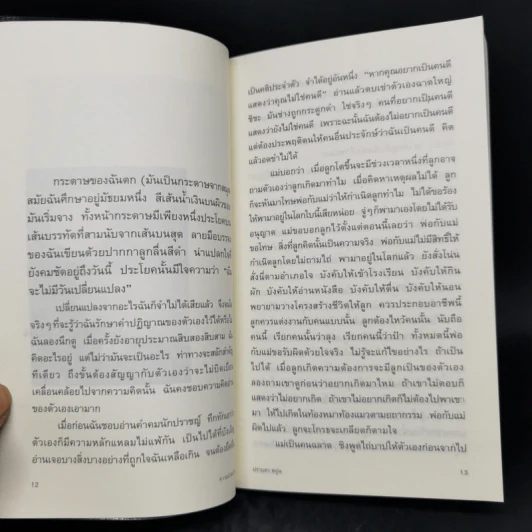 กระดาษของฉันตก (มันเป็นกระดาษจากสมุด
สมัยฉันศึกษาอยู่มัธยมหนึ่ง สีเส้นน้ำเงินบนผิวของ
มันเริ่มจาง ทั้งหน้ากระดาษมีเพียงหนึ่งประโยคบน
เส้นบรรทัดที่สามนับจากเส้นบนสุด ลายมือบรรจง
ของฉันเขียนด้วยปากกาลูกลื่นสีดำ น่าแปลกใจที่
ยังคมชัดอยู่ถึงวันนี้ ประโยคนั้นมีใจความว่า "ฉัน
จะไม่มีวันเปลี่ยนแปลง"
เปลี่ยนแปลงจากอะไรฉันก็จำไม่ได้เสียแล้ว
จริงๆ ที่จะรู้ว่าฉันรักษาคำปฏิญาณของตัวเองไว้ได้หรือไม่
ฉันลองนึกดู เมื่อครั้งยังอายุประมาณสิบสองสิบสาม
คิดอะไรอยู่ แต่ไม่ว่ามันจะเป็นอะไร ท่าทางจะสลักสำคัญ
ทีเดียว ถึงขั้นต้องสัญญากับตัวเองว่าจะไม่บิดเบี้ยว
เคลื่อนคล้อยไปจากความคิดนั้น ฉันคงชอบความคิด
ของตัวเองเอามาก
เมื่อก่อนฉันชอบอ่านคำคมนักปราชญ์
ตัวเองก็มีความหลักแหลมไม่แพ้กัน เป็นไปได้ที่
อ่านเจอบางสิ่งบางอย่างที่ถูกใจฉันเหลือเกิน จน
12
เป็นคติประจำตัว จำได้อยู่อันหนึ่ง "หากคุณอยากเป็นคนดี
แสดงว่าคุณไม่ใช่คนดี" อ่านแล้วตบเข่าตัวเองฉาดใหญ่
ชีชะ มันช่างถูกกระดูกดำ ใช่จริงๆ คนที่อยากเป็นคนดี
แสดงว่ายังไม่ใช่คนดี เพราะฉะนั้นฉันต้องไม่อยากเป็นคนดี
แต่ต้องประพฤติตนให้คนอื่นประจักษ์ว่าฉันเป็นคนดี คิด
แล้วอดขำไม่ได้
แม่บอกว่า เมื่อลูกโตขึ้นจะมีช่วงเวลาหนึ่งที่ลูกอาจ
ถามตัวเองว่าลูกเกิดมาทำไม เมื่อคิดหาเหตุผลไม่ได้ ลูก
ก็จะหันมาโทษพ่อกับแม่ว่าให้กำเนิดลูกทำไม ไม่ได้ขอร้อง
ให้พามาอยู่ในโลกใบนี้เสียหน่อย จู่ๆ ก็พามาเองโดยไม่ได้รับ
อนุญาต แม่ขอบอกลูกไว้ตั้งแต่ตอนนี้เลยว่า พ่อกับแม่
ขอโทษ สิ่งที่ลูกคิดนั้นเป็นความจริง พ่อกับแม่ไม่มีสิทธิ์ให้
กำเนิดลูกโดยไม่ถามไถ่ พามาอยู่ในโลกแล้ว ยังตั้งชื่อโน่น
นั่นนี่ตามอำเภอใจ บังคับให้เข้าโรงเรียน บังคับให้กิน
ผัก บังคับให้อ่านหนังสือ บังคับให้ตื่น บังคับให้นอน
พยายามวางโครงสร้างชีวิตให้ลูก ควรประกอบอาชีพนี้
ลูกควรแต่งงานกับคนแบบนั้น ลูกต้องไหว้คนนั้น นับถือ
คนนี้ เรียกคนนั้นว่าลุง เรียกคนนี้ว่าป้า ทั้งหมดนี้พ่อ
กับแม่ขอรับผิดด้วยใจจริง ไม่รู้จะแก้ไขอย่างไร ถ้าเป็น
ไปได้ เมื่อลูกเกิดความต้องการจะมีลูกเป็นของตัวเอง
ลองถามเขาดูก่อนว่าอยากเกิดมาไหม ถ้าเขาไม่ตอบก็
แสดงว่าไม่อยากเกิด ถ้าเขาไม่อยากเกิดก็ไม่ต้องไปพาเขา
มา ให้ไปเกิดในท้องหมาท้องแมวตามยถากรรม พ่อกับแม่
ผิดไปแล้ว ลูกจะโกรธเกลียดก็ตามใจ
แม่เป็นคนฉลาด ชิงพูดไถ่บาปให้ตัวเองก่อนจากไป
ปราบดา หยุ่น
13